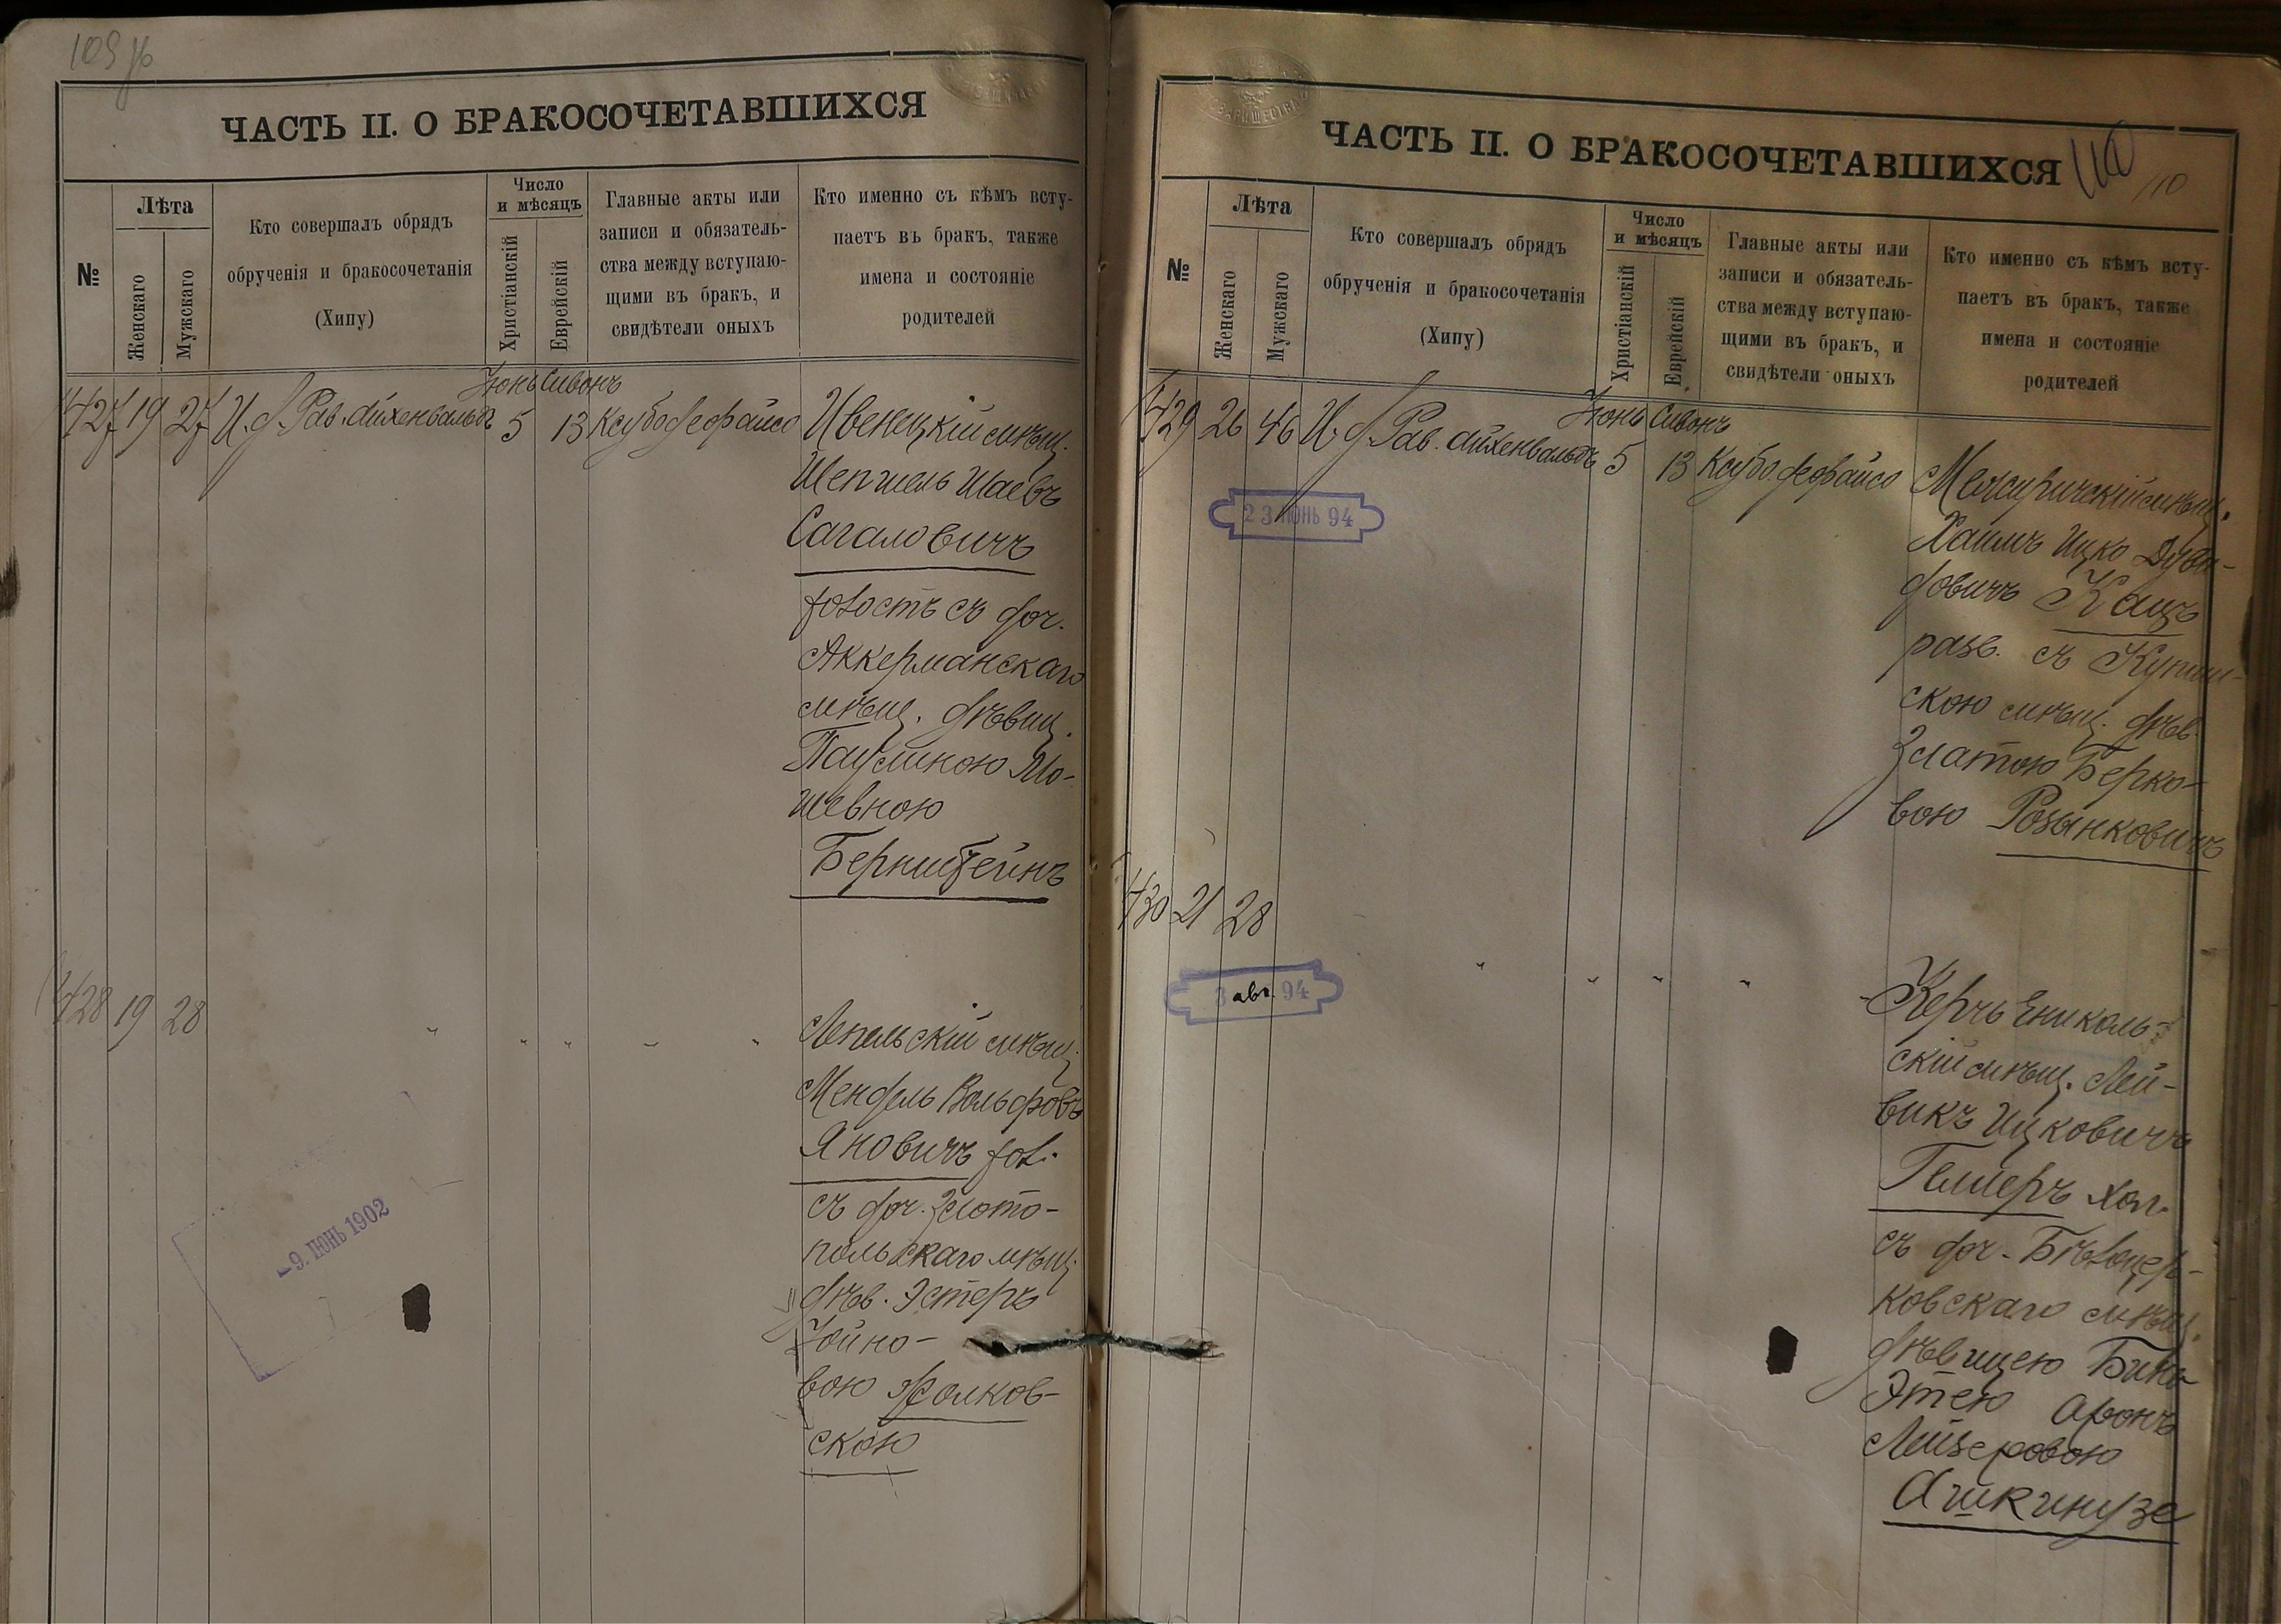 109
ЧАСТЬ II. О БРАКОСОЧЕТАВШИХСЯ
№
Лѣта
Женскаго
Мужскаго
Кто совершалъ обрядъ
обрученія и бракосочетанія
(Хипу)
Число
и мѣсяцъ
Христіанскій
Еврейскій
Главные акты или
записи и обязатель-
ства между вступаю-
щими въ бракъ, и
свидѣтели оныхъ
Кто именно съ кѣмъ всту-
паетъ въ бракъ, также
имена и состояніе
родителей
Іюнь Сивонъ
427 19 27 И. д. Рав. Айхенвальдъ 5 13 Ксубо
Ивенецкій мѣщ.
Шепшель Шаевъ
Сагаловичъ
холостъ съ доч.
Аккерманскаго
мѣщ. дѣвиц.
Паулиною Мо-
шевною
Бернштейнъ
428 19 28 " " " " "
Лепельскій мѣщ.
Мендель Вольфовъ
Яновичъ хол.
съ доч. Злото-
польскаго мѣщ.
дѣв. Эстеръ
Іойно-
вою Фолков-
скою
9. ІЮНЬ 1902
ЧАСТЬ II. О БРАКОСОЧЕТАВШИХСЯ
110
110
№
Лѣта
Женскаго
Мужскаго
Кто совершалъ обрядъ
обрученія и бракосочетанія
(Хипу)
Число
и мѣсяцъ
Христіанскій
Еврейскій
Главные акты или
записи и обязатель-
ства между вступаю-
щими въ бракъ, и
свидѣтели оныхъ
Кто именно съ кѣмъ всту-
паетъ въ бракъ, также
имена и состояніе
родителей
Іюнь Сивонъ
429 26 46 И. д. Рав. Айхенвальдъ 5 13 Ксубо
23 ІЮНЬ 94
Межиричскій мѣщ.
Хаимъ Ицко Дуви-
довичъ Кацъ
разв. съ
скою мѣщ. дѣв.
Златою Берко-
вою Розынковичъ
430 21 28 " " " "
3 авг. 94
Керчь Ениколь-
скій мѣщ. Лей-
викъ Ицковичъ
Геллеръ хол.
съ доч. Бѣлоцер-
ковскаго мѣщ.
дѣвицею
Этею Аронъ
Лейзеровою
Ашкинузе